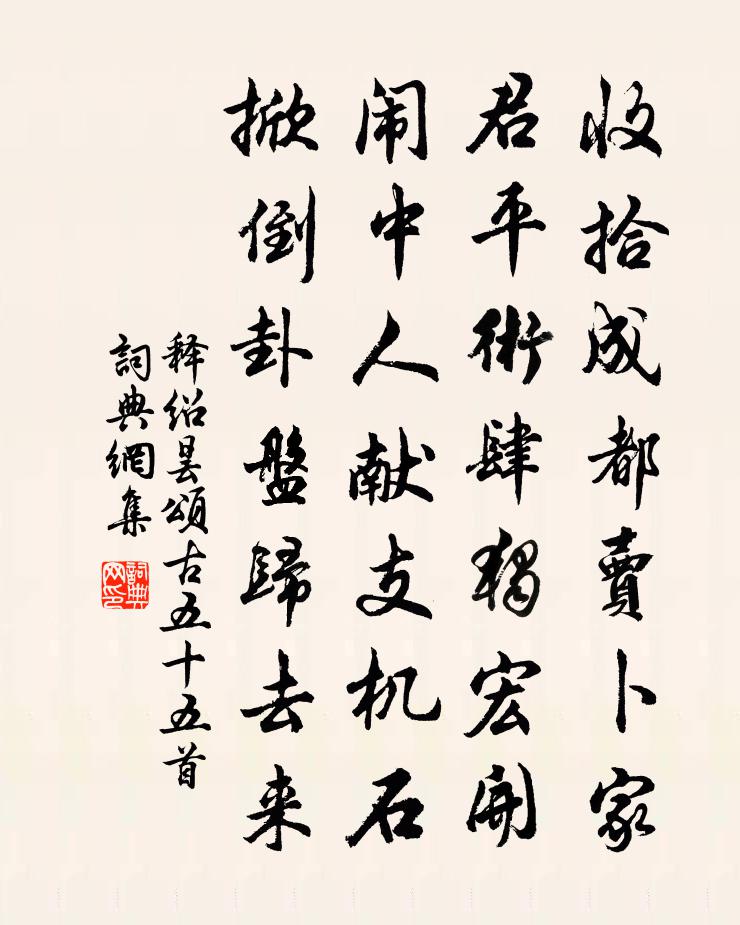 收拾成都賣卜家
君平術肆独宏開
闹中人献支机石
掀倒卦盤歸去来
释绍昙頌古五十五首
詞典網集
詞典网印